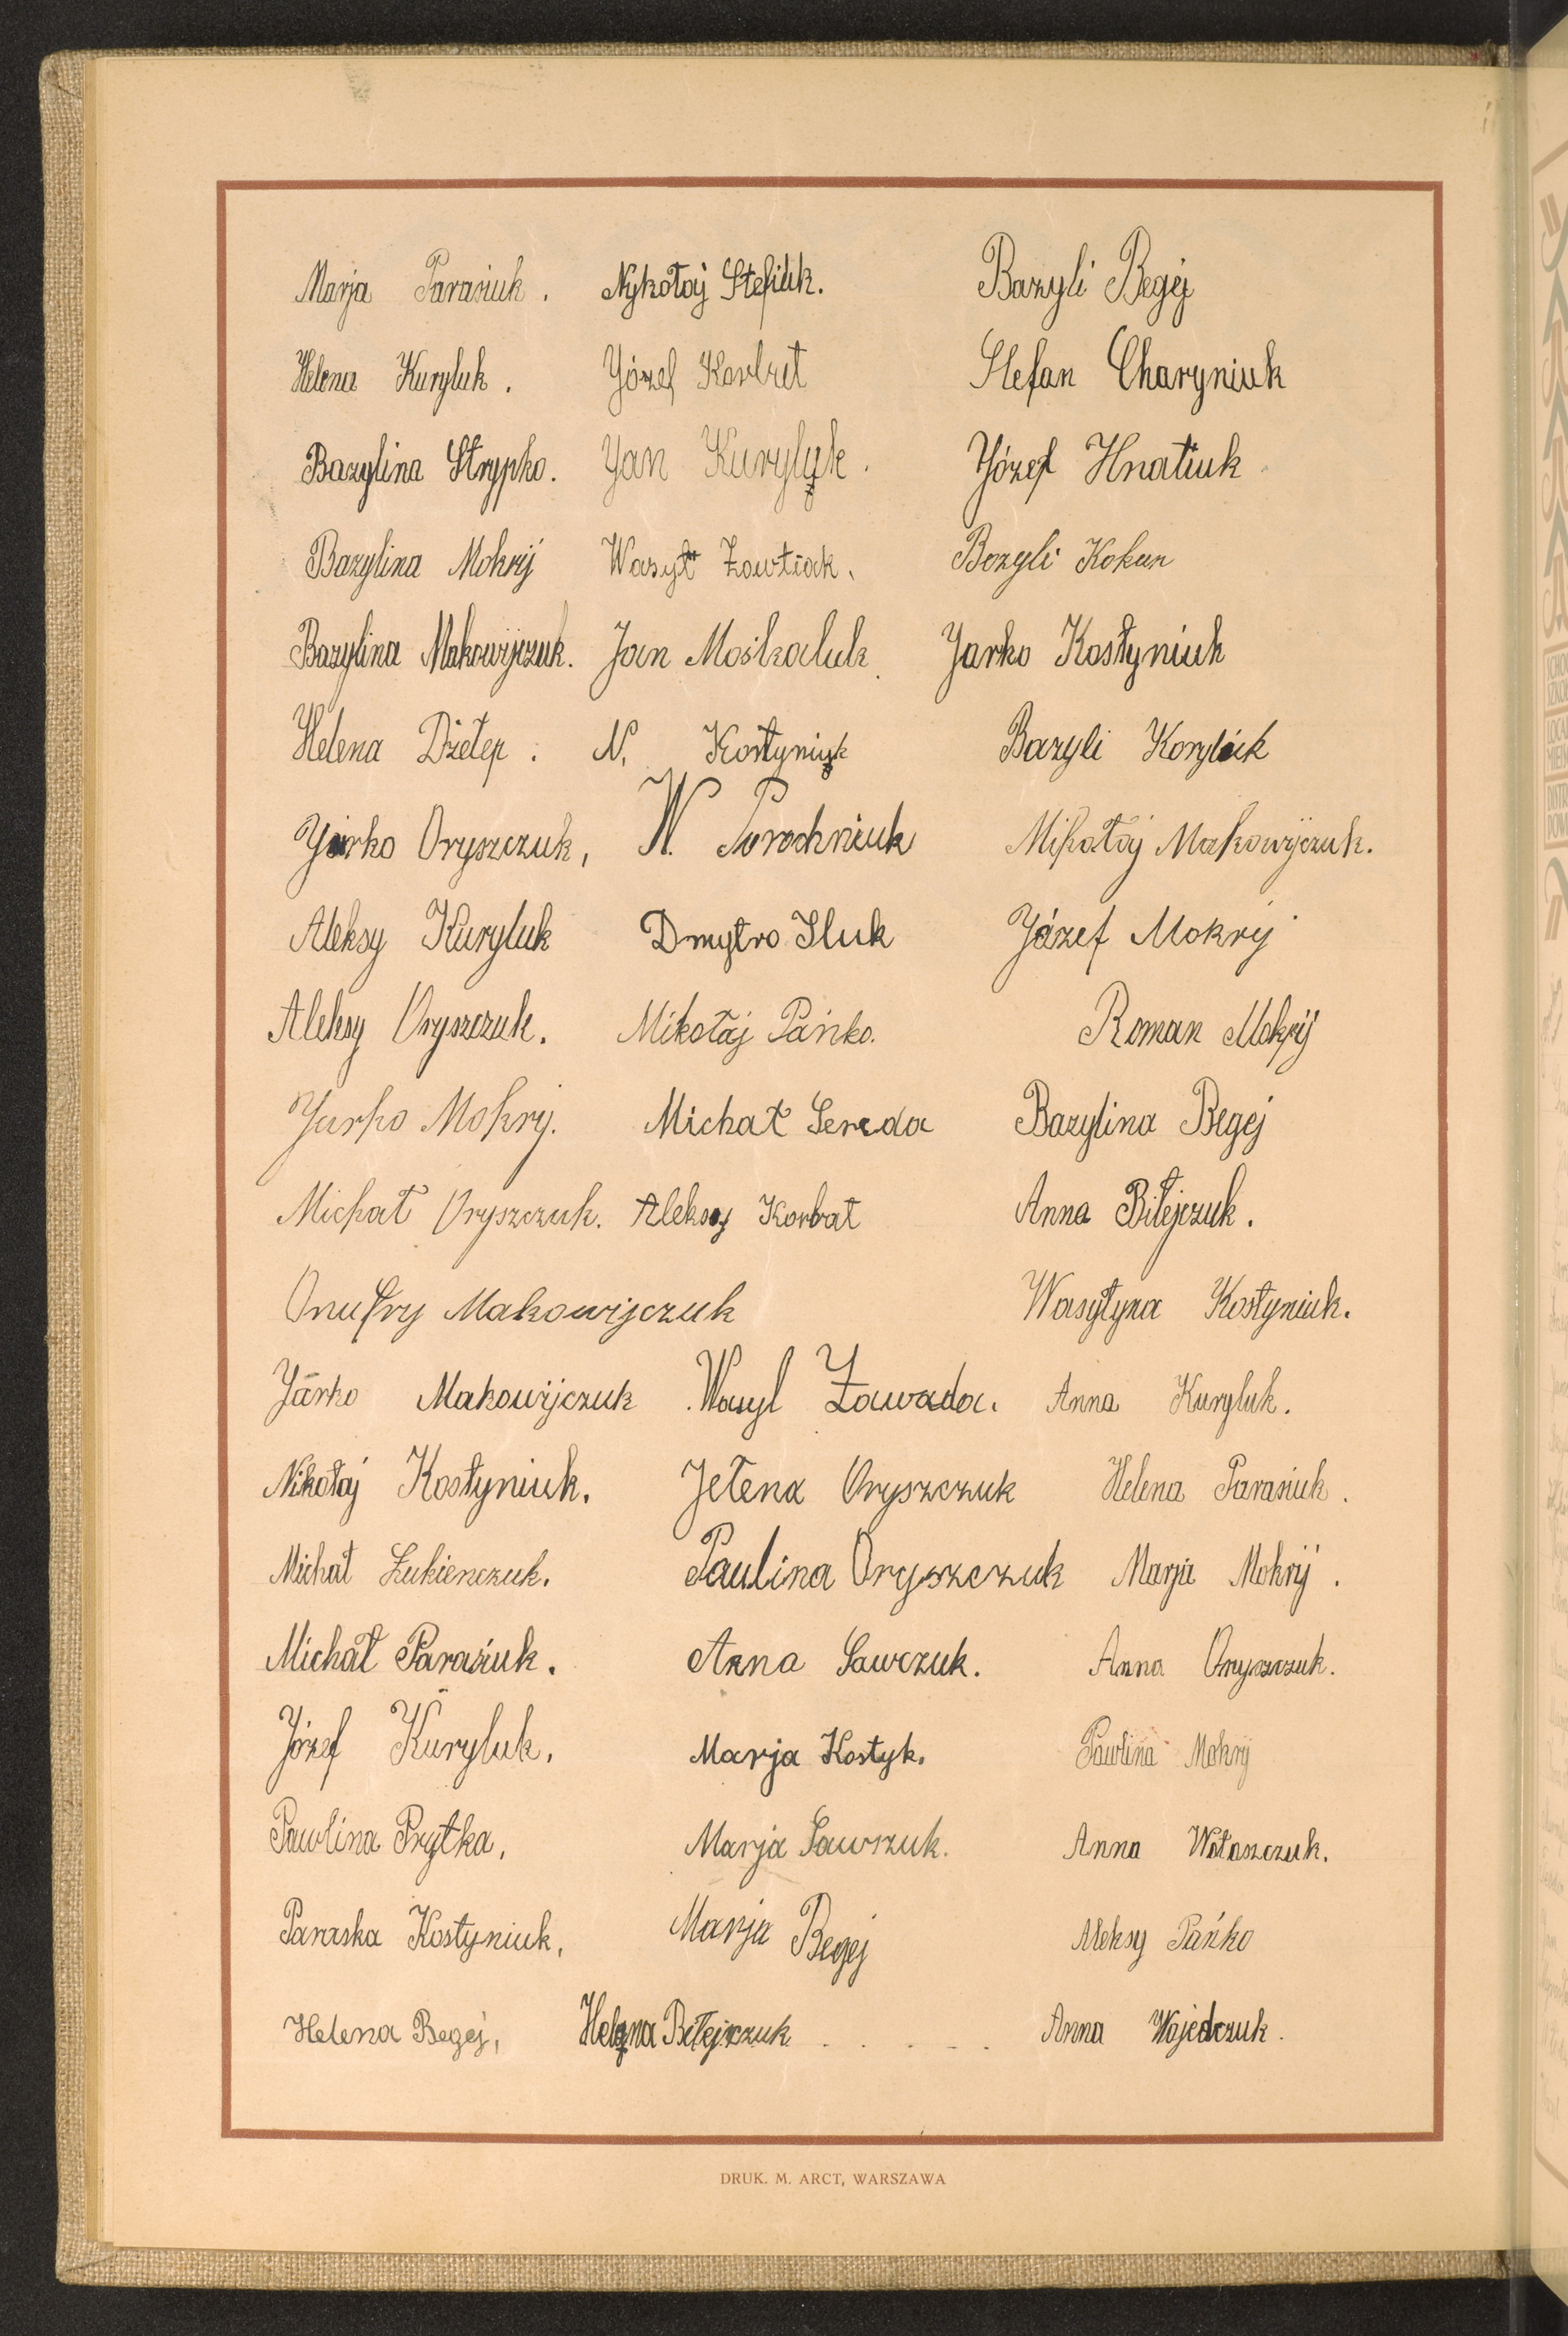 Marja Parasiuk. Nykołaj Stefiuk. Bazyli Begej
Helena Kuryluk. Józef Korbut Stefan Charyniuk
Bazylina Strypko. Jan Kuryluk. Józef Hnatiuk
Bazylina Mokrij Wasył Bozyli Kokun
Bazylina Makowijczuk. Jan Moskaluk Jarko Kostyniuk
Helena Dżełep. N. Kostyniuk Bazyli Koryluk
Jarko Oryszczuk, W. Porochniuk Mikołaj Makowijczuk.
Aleksy Kuryluk Dmytro Iluk Józef Mokrij
Aleksy Oryszczuk. Mikołaj Pańko. Roman Mokrij
Jurko Mokry. Michał Sereda Bazylina Begej
Michał Oryszczuk. Aleksy Korbat Anna Biłejczuk.
Onufry Makowijczuk Wasyłyna Kostyniuk.
Jarko Makowijczuk Wasyl Zawada. Anna Kuryluk.
Nikołaj Kostyniuk. Jełena Oryszczuk Helena Parasiuk.
Michał Łukienczuk. Paulina Oryszczuk Marja Mokrij.
Michał Parasiuk. Anna Sawczuk. Anna Oryszczuk.
Józef Kuryluk. Marja Kostyk. Pawlina Mokrij
Pawlina Prytka, Marja Sawczuk. Anna Wołoszczuk.
Paraska Kostyniuk, Marja Begej Aleksy Pańko
Helena Begej, Helena Biłejczuk Anna Wojedczuk.
DRUK. M. ARCT, WARSZAWA